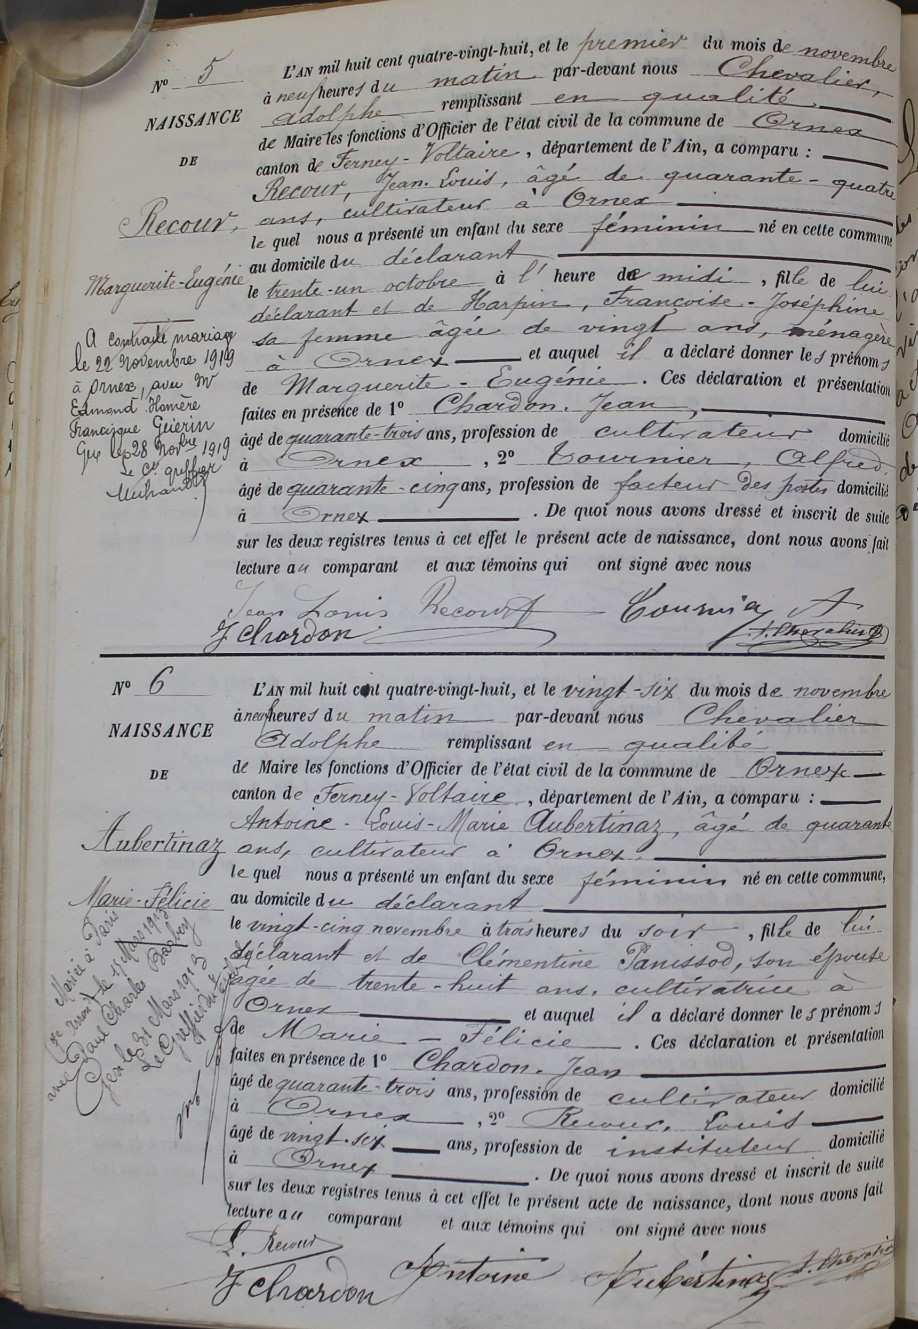 N° 5
NAISSANCE
DE
Recour,
Marguerite-Eugénie
A contracté mariage
le 22 Novembre 1919
à Ornex, avec Mr
Edmond Homère
Francisque Guérin
Gex le 28 Novbre 1919
Le Cis greffier
L'AN mil huit cent quatre-vingt-huit, et le premier du mois de novembre
à neuf heures du matin par-devant nous Chevalier,
Adolphe remplissant en qualité
de Maire les fonctions d'Officier de l'état civil de la commune de Ornex
canton de Ferney-Voltaire, département de l'Ain, a comparu :
Recour, Jean-Louis, âgé de quarante-quatre
ans, cultivateur à Ornex
le quel nous a présenté un enfant du sexe féminin né en cette commune
au domicile du déclarant
le trente-un octobre à l' heure de midi, fille de lui
déclarant et de Harpin, Françoise-Joséphine
sa femme âgée de vingt ans, ménagère
à Ornex et auquel il a déclaré donner les prénoms
de Marguerite-Eugénie. Ces déclaration et présentation
faites en présence de 1° Chardon Jean,
âgé de quarante-trois ans, profession de cultivateur domicilié
à Ornex, 2° Tournier, Alfred
âgé de quarante-cinq ans, profession de facteur des postes domicilié
à Ornex. De quoi nous avons dressé et inscrit de suite
sur les deux registres tenus à cet effet le présent acte de naissance, dont nous avons fait
lecture au comparant et aux témoins qui ont signé avec nous
Jean Louis Recourt Tournier A
J Chardon A. Chevalier
N° 6
NAISSANCE
DE
Aubertinaz
Marie-Félicie
Mariée à Paris
le 15 Mars 1913
avec Paul Charles
Gex le 31 Mars 1913
Le Greffier du
L'AN mil huit cent quatre-vingt-huit, et le vingt-six du mois de novembre
à neuf heures du matin par-devant nous Chevalier
Adolphe remplissant en qualité
de Maire les fonctions d'Officier de l'état civil de la commune de Ornex
canton de Ferney-Voltaire, département de l'Ain, a comparu :
Antoine-Louis-Marie Aubertinaz, âgé de quarante
ans, cultivateur à Ornex,
le quel nous a présenté un enfant du sexe féminin né en cette commune,
au domicile du déclarant
le vingt-cinq novembre à trois heures du soir, fille de lui
déclarant et de Clémentine Panissod, son épouse
âgée de trente-huit ans, cultivatrice à
Ornex et auquel il a déclaré donner les prénoms
de Marie-Félicie. Ces déclaration et présentation
faites en présence de 1° Chardon Jean
âgé de quarante-trois ans, profession de cultivateur domicilié
à Ornex, 2° Recour, Louis
âgé de vingt-six ans, profession de instituteur domicilié
à Ornex. De quoi nous avons dressé et inscrit de suite
sur les deux registres tenus à cet effet le présent acte de naissance, dont nous avons fait
lecture au comparant et aux témoins qui ont signé avec nous
L. Recour
J Chardon Antoine Aubértinaz A. Chevalier